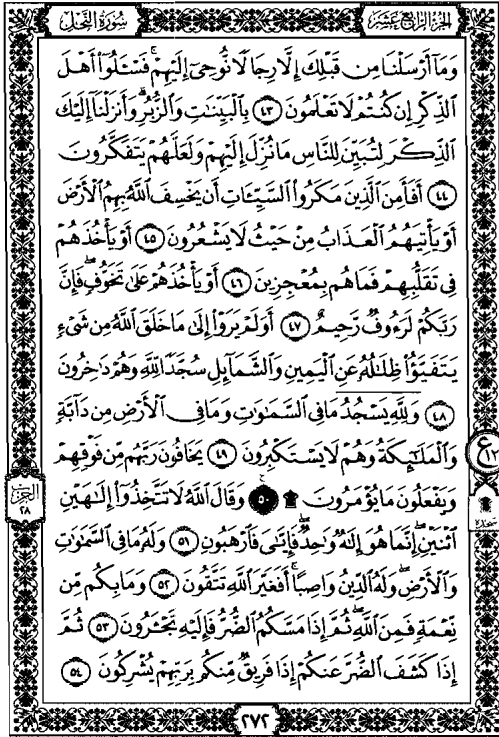 سُورَةُ النَّحْلِ
الجُزْءُ الرَّابِعُ عَشَرَ
وَمَآ أَرْسَلْنَا مِن قَبْلِكَ إِلَّا رِجَالًا نُّوحِىٓ إِلَيْهِمْ ۚ فَسْـَٔلُوٓا۟ أَهْلَ
ٱلذِّكْرِ إِن كُنتُمْ لَا تَعْلَمُونَ ٤٣ بِٱلْبَيِّنَـٰتِ وَٱلزُّبُرِ ۗ وَأَنزَلْنَآ إِلَيْكَ
ٱلذِّكْرَ لِتُبَيِّنَ لِلنَّاسِ مَا نُزِّلَ إِلَيْهِمْ وَلَعَلَّهُمْ يَتَفَكَّرُونَ
٤٤ أَفَأَمِنَ ٱلَّذِينَ مَكَرُوا۟ ٱلسَّيِّـَٔاتِ أَن يَخْسِفَ ٱللَّهُ بِهِمُ ٱلْأَرْضَ
أَوْ يَأْتِيَهُمُ ٱلْعَذَابُ مِنْ حَيْثُ لَا يَشْعُرُونَ ٤٥ أَوْ يَأْخُذَهُمْ
فِى تَقَلُّبِهِمْ فَمَا هُم بِمُعْجِزِينَ ٤٦ أَوْ يَأْخُذَهُمْ عَلَىٰ تَخَوُّفٍ فَإِنَّ
رَبَّكُمْ لَرَءُوفٌ رَّحِيمٌ ٤٧ أَوَلَمْ يَرَوْا۟ إِلَىٰ مَا خَلَقَ ٱللَّهُ مِن شَىْءٍ
يَتَفَيَّؤُا۟ ظِلَـٰلُهُۥ عَنِ ٱلْيَمِينِ وَٱلشَّمَآئِلِ سُجَّدًا لِّلَّهِ وَهُمْ دَٰخِرُونَ
٤٨ وَلِلَّهِ يَسْجُدُ مَا فِى ٱلسَّمَـٰوَٰتِ وَمَا فِى ٱلْأَرْضِ مِن دَآبَّةٍ
وَٱلْمَلَـٰٓئِكَةُ وَهُمْ لَا يَسْتَكْبِرُونَ ٤٩ يَخَافُونَ رَبَّهُم مِّن فَوْقِهِمْ
وَيَفْعَلُونَ مَا يُؤْمَرُونَ ۩ ٥٠ ۞ وَقَالَ ٱللَّهُ لَا تَتَّخِذُوٓا۟ إِلَـٰهَيْنِ
ٱثْنَيْنِ ۖ إِنَّمَا هُوَ إِلَـٰهٌ وَٰحِدٌ ۖ فَإِيَّـٰىَ فَٱرْهَبُونِ ٥١ وَلَهُۥ مَا فِى ٱلسَّمَـٰوَٰتِ
وَٱلْأَرْضِ وَلَهُ ٱلدِّينُ وَاصِبًا ۚ أَفَغَيْرَ ٱللَّهِ تَتَّقُونَ ٥٢ وَمَا بِكُم مِّن
نِّعْمَةٍ فَمِنَ ٱللَّهِ ۖ ثُمَّ إِذَا مَسَّكُمُ ٱلضُّرُّ فَإِلَيْهِ تَجْـَٔرُونَ ٥٣ ثُمَّ
إِذَا كَشَفَ ٱلضُّرَّ عَنكُمْ إِذَا فَرِيقٌ مِّنكُم بِرَبِّهِمْ يُشْرِكُونَ ٥٤
ع ١٢
سجدة
الحزب
٢٨
٢٧٢